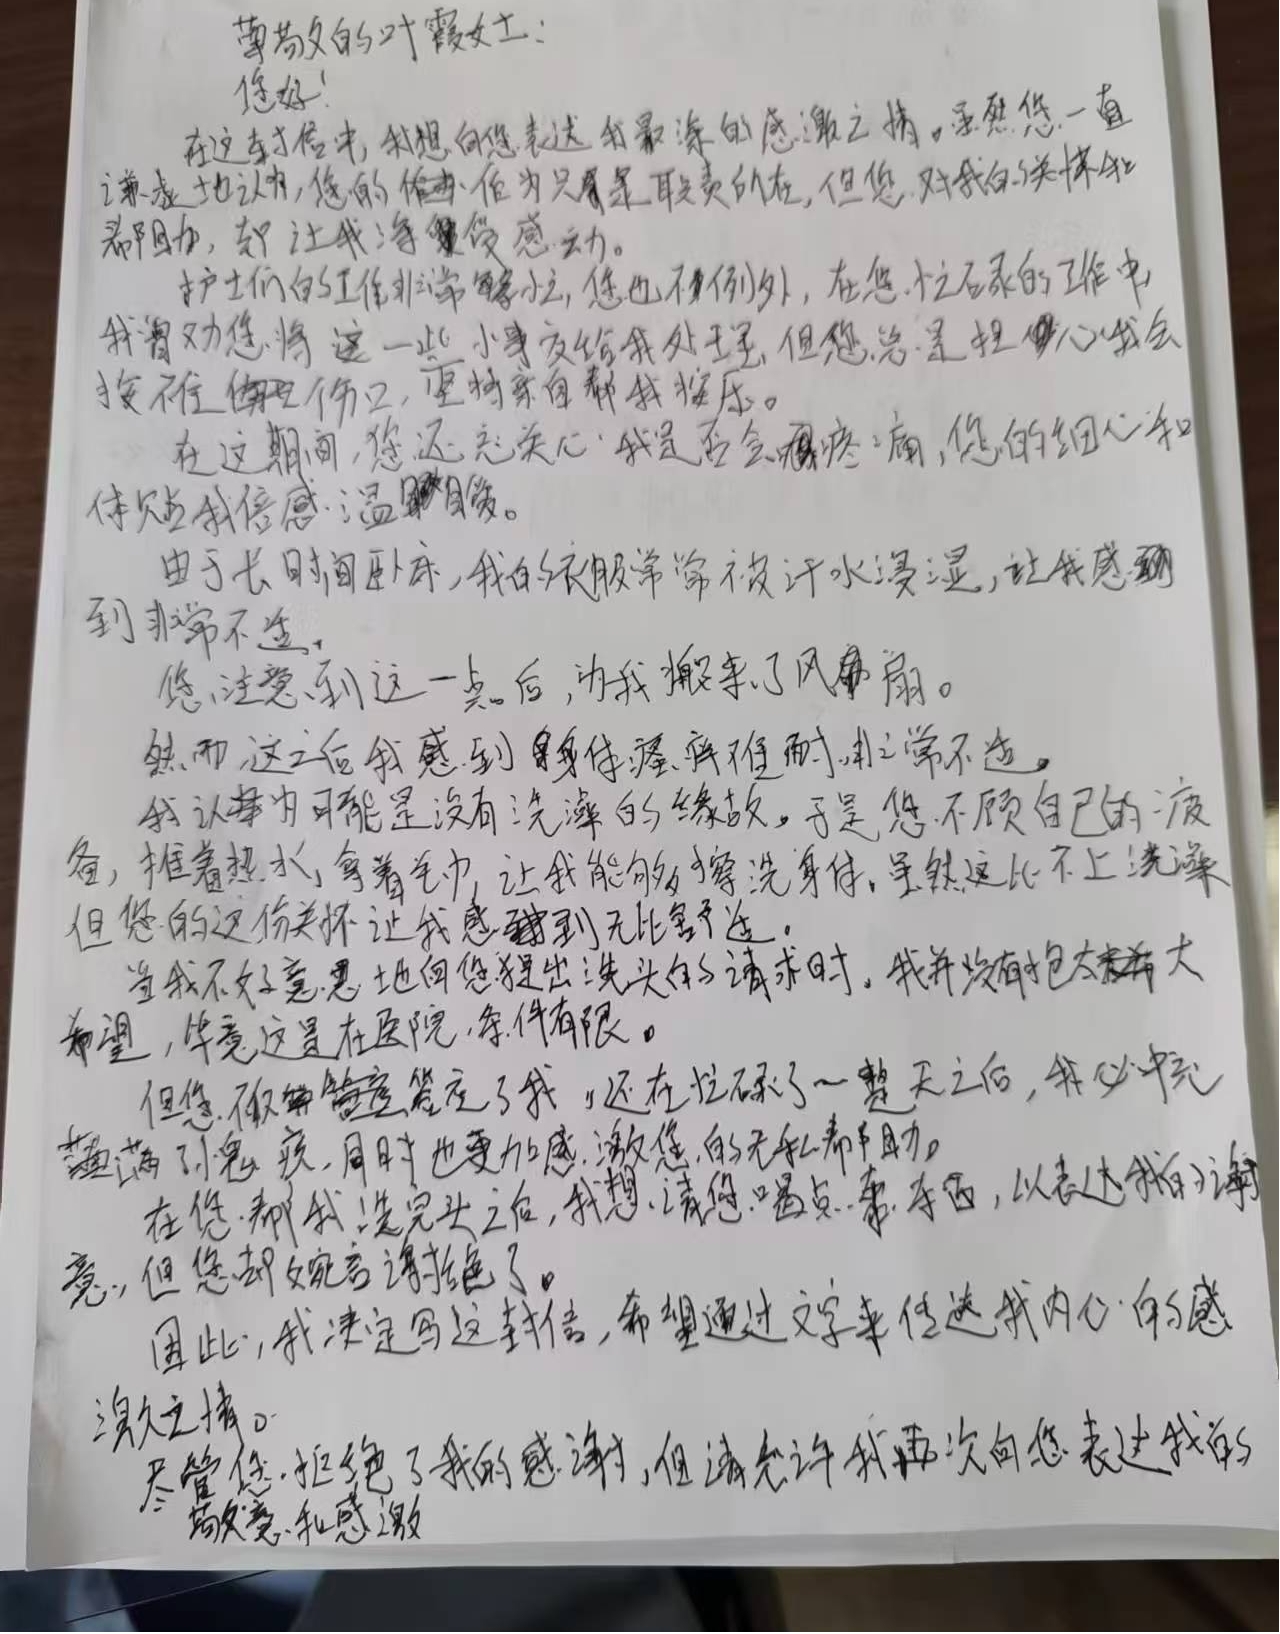 尊敬的叶霞女士：
您好！
在这封信中，我想向您表达我最深的感激之情。虽然您一直
谦虚地认为，您的作为只是职责所在，但您对我的关怀和
帮助，却让我深受感动。
护士们的工作非常繁忙，您也不例外，在您忙碌的工作中
我曾劝您将这一些小事交给我处理，但您总是担心我会
按不住伤口，坚持亲自帮我按压。
在这期间，您还关心我是否会疼痛，您的细心和
体贴我倍感温暖。
由于长时间卧床，我的衣服常常被汗水浸湿，让我感
到非常不适。
您注意到这一点后，为我搬来了风扇。
然而，这之后我感到身体瘙痒难耐，非常不适。
我认为可能是没有洗澡的缘故。于是您不顾自己的疲
惫，推着热水，拿着毛巾，让我能够擦洗身体。虽然这比不上洗澡
但您的这份关怀让我感到无比舒适。
当我不好意思地向您提出洗头的请求时，我并没有抱太大
希望，毕竟这是在医院，条件有限。
但您不仅答应了我，还在忙碌了一整天之后，我心中充
满了愧疚，同时也更加感激您的无私帮助。
在您帮我洗完头之后，我想请您喝点东西，以表达我的谢
意，但您却婉言谢绝了。
因此，我决定写这封信，希望通过文字来传达我内心的感
激之情。
尽管您拒绝了我的感谢，但请允许我再次向您表达我的
敬意和感激